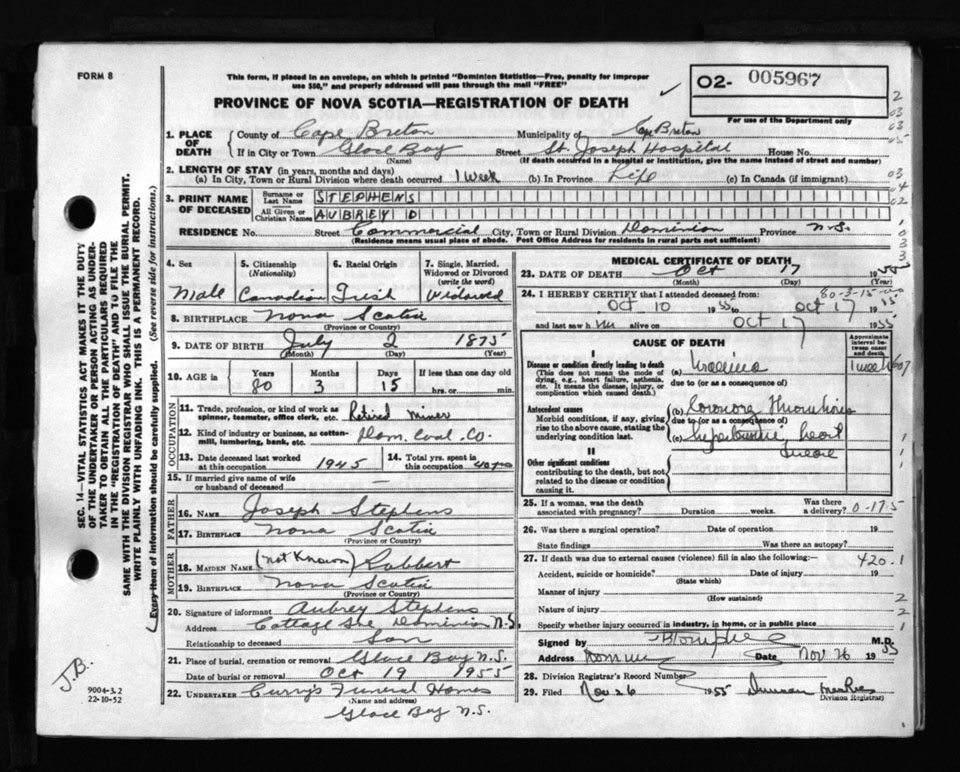 FORM 8
This form, if placed in an envelope, on which is printed "Dominion Statistics—Free, penalty for improper
use $50," and properly addressed will pass through the mail "FREE"
PROVINCE OF NOVA SCOTIA—REGISTRATION OF DEATH
02- 005967
For use of the Department only
1. PLACE OF DEATH County of Cape Breton Municipality of Cape Breton
If in City or Town Glace Bay Street St. Joseph Hospital House No.
(Name) (If death occurred in a hospital or institution, give the name instead of street and number)
2. LENGTH OF STAY (in years, months and days)
(a) In City, Town or Rural Division where death occurred 1 week (b) In Province Life (c) In Canada (if immigrant)
3. PRINT NAME OF DECEASED Surname or Last Name STEPHENS
All Given or Christian Names AUBREY D
RESIDENCE No. Street Commercial City, Town or Rural Division Dominion Province N.S.
(Residence means usual place of abode. Post Office Address for residents in rural parts not sufficient)
4. Sex 5. Citizenship (Nationality) 6. Racial Origin 7. Single, Married, Widowed or Divorced (write the word)
Male Canadian Irish Widowed
8. BIRTHPLACE Nova Scotia
(Province or Country)
9. DATE OF BIRTH July 2 1875
(Month) (Day) (Year)
10. AGE in Years Months Days If less than one day
80 3 15 hrs. or min.
OCCUPATION
11. Trade, profession, or kind of work as spinner, teamster, office clerk, etc. Retired miner
12. Kind of industry or business, as cotton-mill, lumbering, bank, etc. Dom. Coal Co.
13. Date deceased last worked at this occupation 1945 14. Total yrs. spent in this occupation 40 yrs
15. If married give name of wife or husband of deceased —
FATHER
16. NAME Joseph Stephens
17. BIRTHPLACE Nova Scotia
(Province or Country)
MOTHER
18. MAIDEN NAME (not Known) Robbert
19. BIRTHPLACE Nova Scotia
(Province or Country)
20. Signature of informant Aubrey Stephens
Address Cottage Dominion N.S.
Relationship to deceased Son
21. Place of burial, cremation or removal Glace Bay N.S.
Date of burial or removal Oct 19 1955
22. UNDERTAKER Curry's Funeral Homes
(Name and address)
Glace Bay N.S.
MEDICAL CERTIFICATE OF DEATH
23. DATE OF DEATH Oct 17 1955
(Month) (Day) (Year)
24. I HEREBY CERTIFY that I attended deceased from: 80-3-15
Oct 10 1955 to Oct 17 1955
and last saw h im alive on Oct 17 1955
CAUSE OF DEATH
Approximate interval between onset and death
I
Disease or condition directly leading to death (a) Uraemia 1 week
(This does not mean the mode of dying, e.g., heart failure, asthenia, etc. It means the disease, injury, or complication which caused death.)
due to (or as a consequence of)
Antecedent causes (b) Coronary Thrombosis
Morbid conditions, if any, giving rise to the above cause, stating the underlying condition last.
due to (or as a consequence of)
(c) heart
II
Other significant conditions
contributing to the death, but not related to the disease or condition causing it.
25. If a woman, was the death associated with pregnancy? Duration weeks. Was there a delivery? 0-17.5
26. Was there a surgical operation? Date of operation 19
State findings Was there an autopsy?
27. If death was due to external causes (violence) fill in also the following:— 420.1
Accident, suicide or homicide? Date of injury 19
(State which)
Manner of injury
(How sustained)
Nature of injury
Specify whether injury occurred in industry, in home, or in public place
Signed by M.D.
Address Date Nov 26 1955
28. Division Registrar's Record Number
29. Filed Nov 26 1955 Duncan
Division Registrar
SEC. 14—VITAL STATISTICS ACT MAKES IT THE DUTY
OF THE UNDERTAKER OR PERSON ACTING AS UNDER-
TAKER TO OBTAIN ALL THE PARTICULARS REQUIRED
IN THE "REGISTRATION OF DEATH" AND TO FILE THE
SAME WITH THE DIVISION REGISTRAR WHO SHALL ISSUE THE BURIAL PERMIT.
WRITE PLAINLY WITH UNFADING INK. THIS IS A PERMANENT RECORD.
Every item of information should be carefully supplied. (See reverse side for instructions.)
J.B.
9004-3.2
22-10-52
2
03
03
05
03
04
02